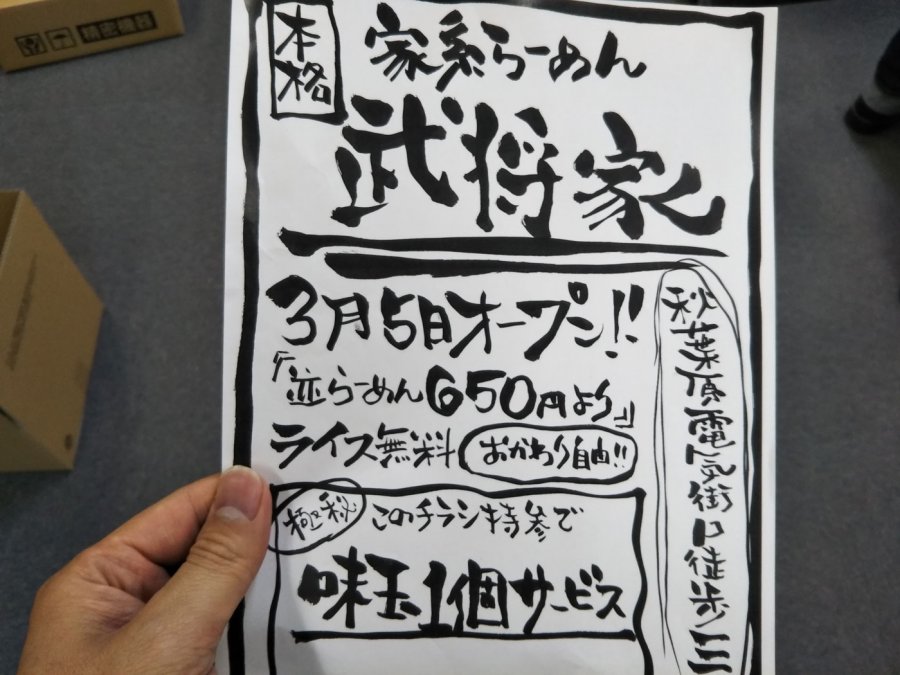 精密機器
本格
家系らーめん
武将家
3月5日オープン!!
『並らーめん650円より』
ライス無料 おかわり自由!!
極秘 このチラシ持参で
味玉1個サービス
秋葉原電気街口徒歩三